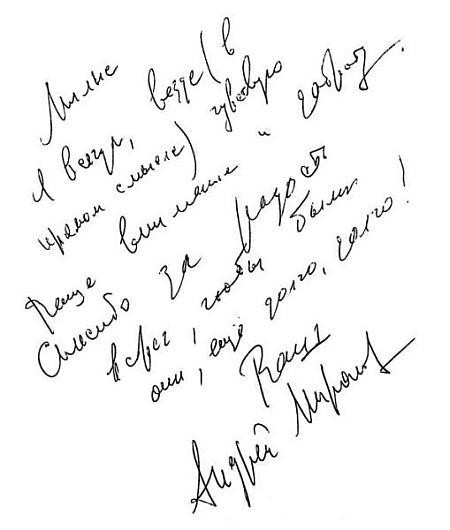 Я всегда, везде (в
прямом смысле) чувствую
Ваше внимание и доброту.
Спасибо за радость
встреч, чтобы были
они, ещё долго, долго!
Ваш
Андрей Миронов